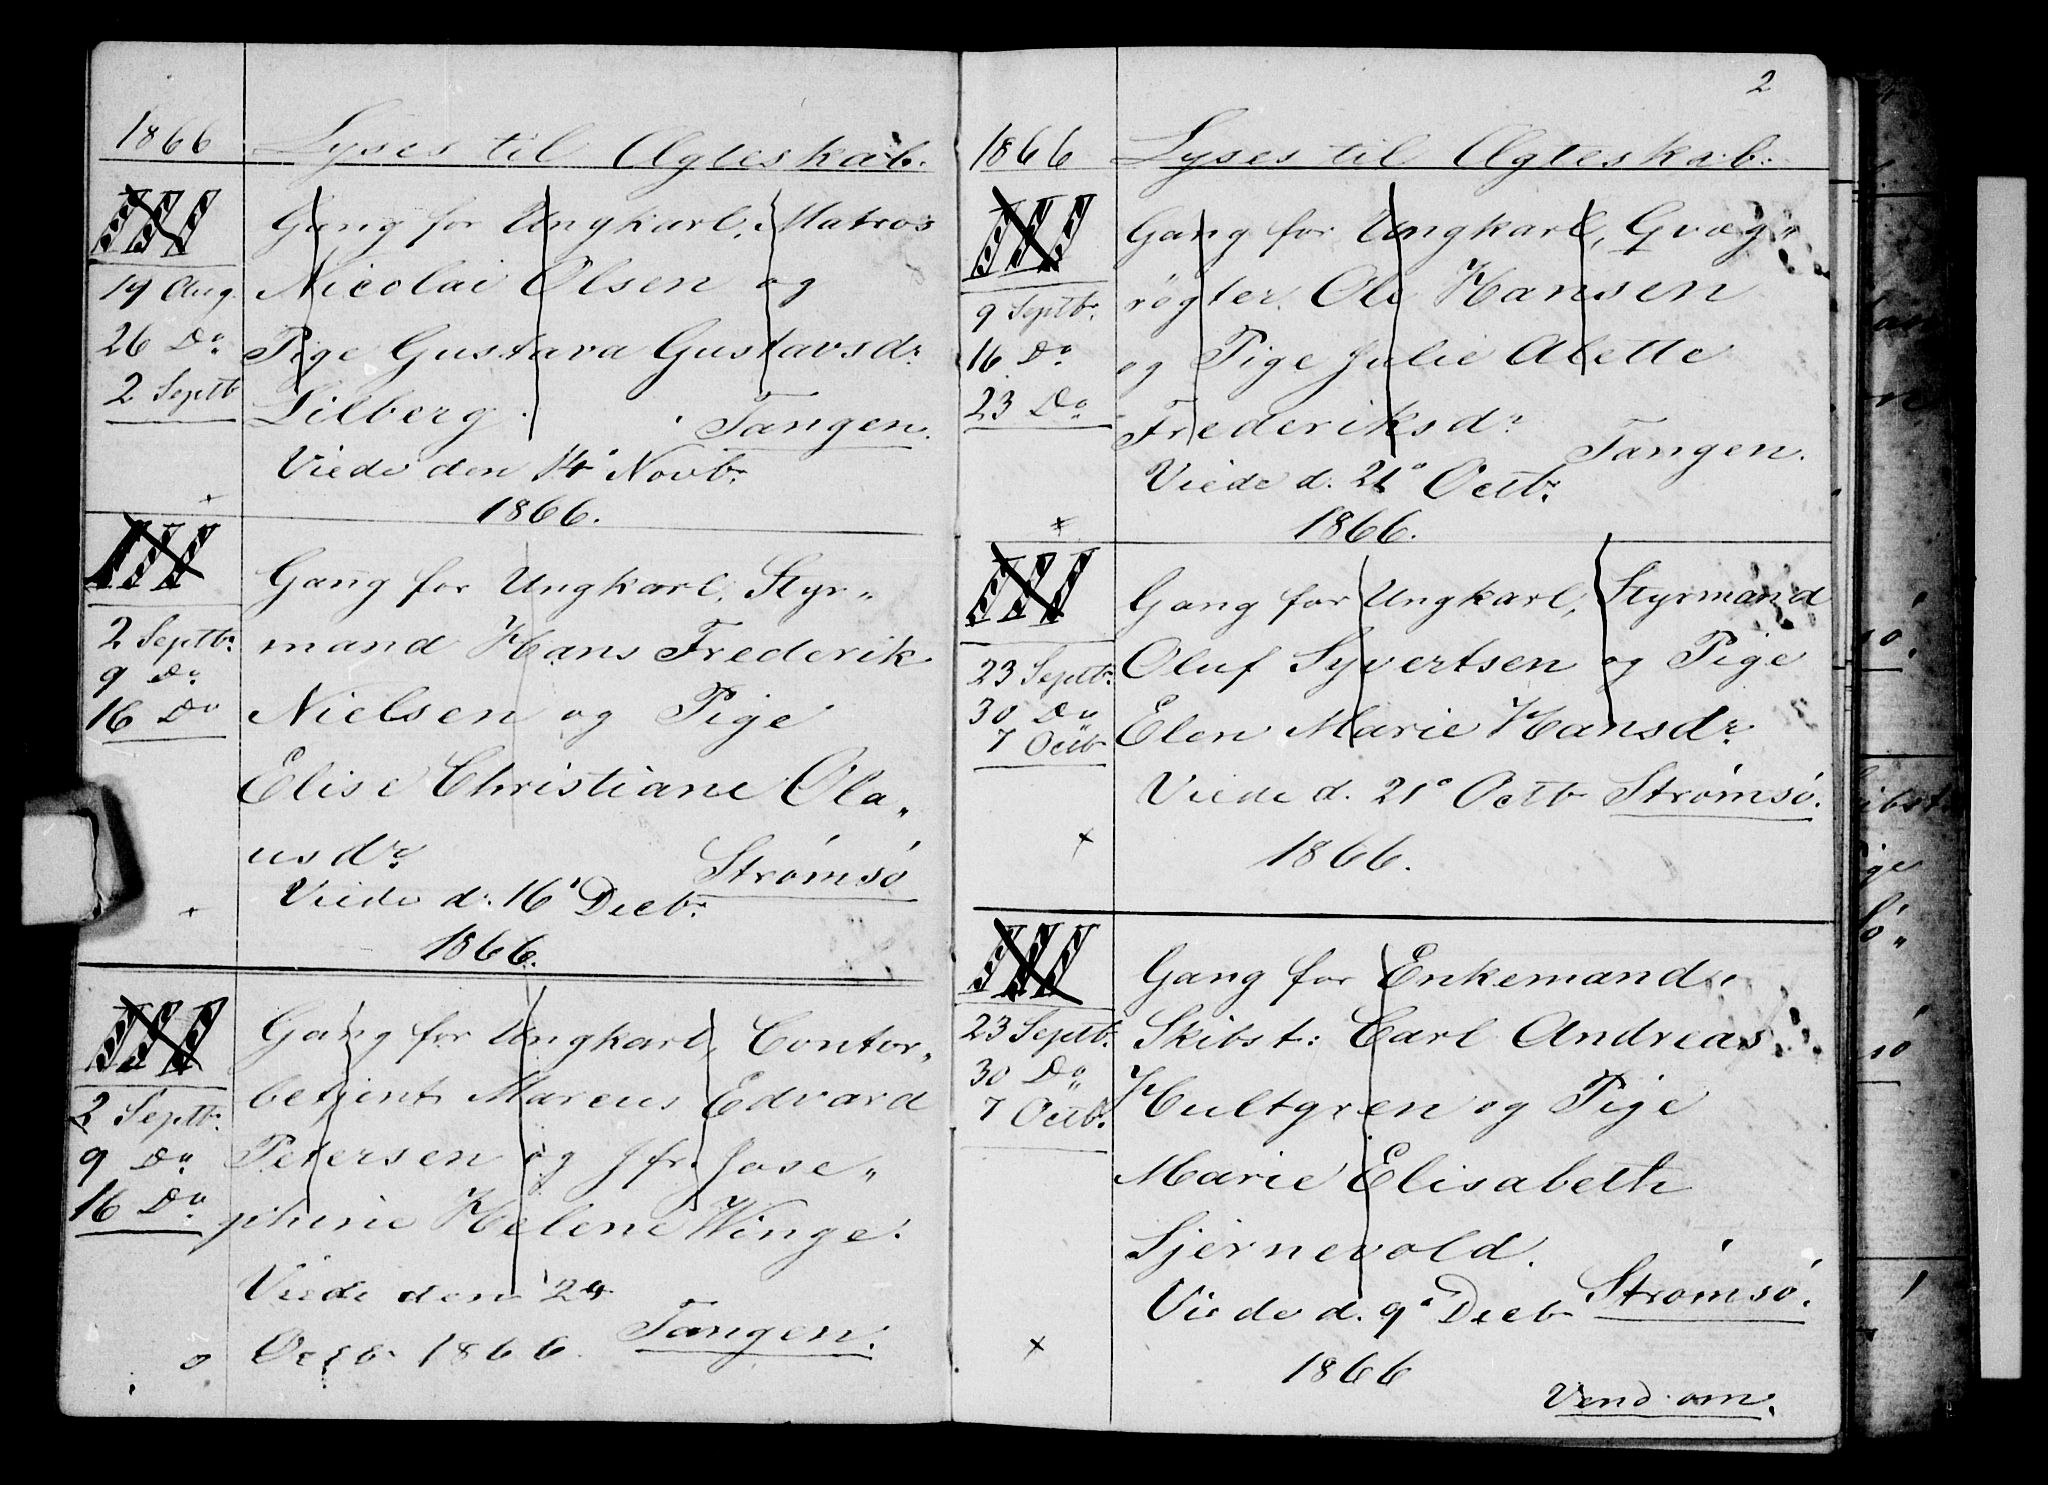 1866 Lyses til Ægteskab.
III Gang for Ungkarl, Matros
19 Aug. Nicolai Olsen og
26 Do Pige Gustava Gustavsdr.
2 Septb Lilberg. Tangen.
Viede den 14' Novbr.
1866.
III Gang for Ungkarl, Styr„
2 Septbr. mand Hans Frederik
9 Do
16 Do Nielsen og Pige
Elise Christiane Ola„
usdr. Strømsø
Viede d. 16' Decbr.
1866.
III Gang for Ungkarl, Contor„
2 Septbr. betjent Marcus Edvard
9 Do Petersen og Jfr. Jose„
16 Do phine Helene Winge.
Viede den 24
Octb 1866. Tangen.
2
1866 Lyses til Ægteskab.
III Gang for Ungkarl, Qvæg„
9 Septbr. røgter Ole Hansen
16 Do og Pige Julie Alette
23 Do Frederiksdr. Tangen.
Viede d. 21' Octbr.
1866.
III Gang for Ungkarl, Styrmand
23 Septbr. Oluf Syvertsen og Pige
30 Do Elen Marie Hansdr.
7 Octb
Viede d. 21' Octb Strømsø.
1866.
III Gang for Enkemand,
23 Septbr. Skibst: Carl Andreas
30 Do Hultgren og Pige
7 Octb.
Marie Elisabeth
Sjernevold.
Viede d. 9' Decb Strømsø.
1866
Vend om.